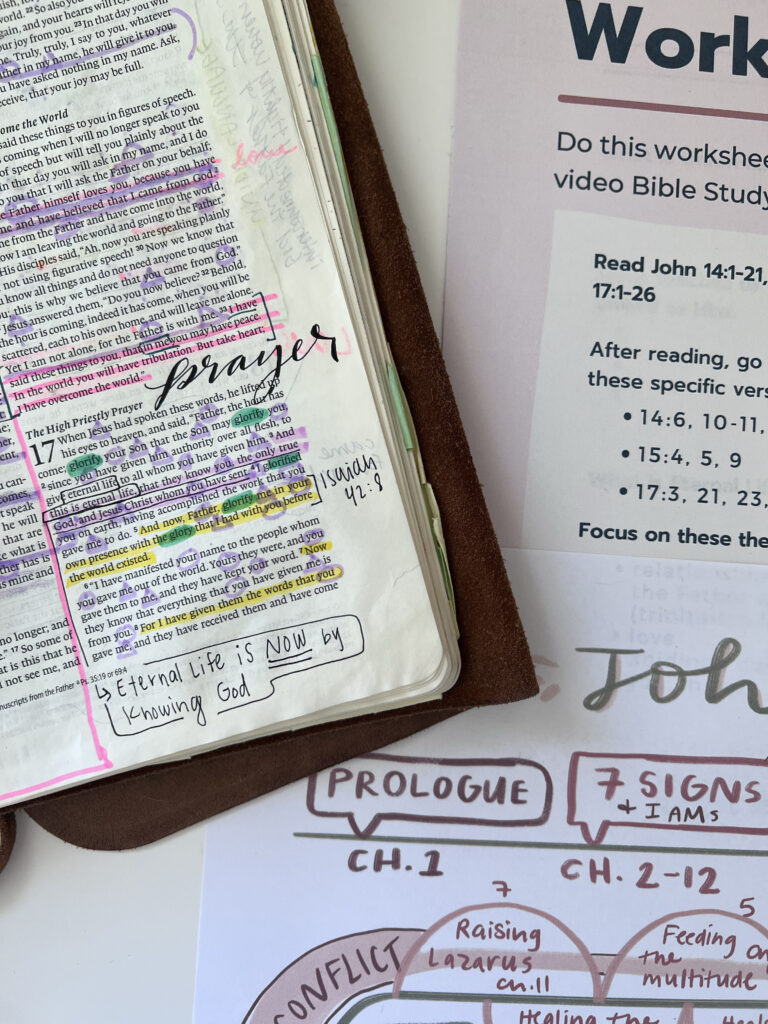 world. 22 So also you
again, and your hearts will rej
your joy from you. 23 In that day you will
me. Truly, truly, I say to you, whatever
Father in my name, he will give it to you.
you have asked nothing in my name. Ask,
receive, that your joy may be full.
come the World
said these things to you in figures of speech.
is coming when I will no longer speak to you
of speech but will tell you plainly about the
In that day you will ask in my name, and I do
to you that I will ask the Father on your behalf;
e Father himself loves you, because you have
me and have believed that I came from God.
me from the Father and have come into the world,
now I am leaving the world and going to the Father."
His disciples said, "Ah, now you are speaking plainly
not using figurative speech! 30 Now we know that
u know all things and do not need anyone to question
; this is why we believe that you came from God."
Jesus answered them, "Do you now believe? 32 Behold,
the hour is coming, indeed it has come, when you will be
scattered, each to his own home, and will leave me alone.
Yet I am not alone, for the Father is with me. 33 I have
said these things to you, that in me you may have peace.
In the world you will have tribulation. But take heart;
I have overcome the world."
prayer
The High Priestly Prayer
17 When Jesus had spoken these words, he lifted up
his eyes to heaven, and said, "Father, the hour has
come; glorify your Son that the Son may glorify you,
2 since you have given him authority over all flesh, to
give eternal life to all whom you have given him. 3 And
this is eternal life, that they know you, the only true
God, and Jesus Christ whom you have sent. 4 I glorified
you on earth, having accomplished the work that you
gave me to do. 5 And now, Father, glorify me in your
own presence with the glory that I had with you before
the world existed.
Isaiah
42:8
6 "I have manifested your name to the people whom
you gave me out of the world. Yours they were, and you
gave them to me, and they have kept your word. 7 Now
they know that everything that you have given me is
from you. 8 For I have given them the words that you
gave me, and they have received them and have come
no longer; and
" 17 So some of
at is this that he
l not see me, and
nuscripts from the Father Ps. 35:19 or 69:4
↳ Eternal Life is NOW by
Knowing God
Work
Do this workshee
video Bible Study
Read John 14:1-21,
17:1-26
After reading, go
these specific vers
• 14:6, 10-11,
• 15:4, 5, 9
• 17:3, 21, 23,
Focus on these the
Joh
PROLOGUE
7 SIGNS
+ I AMS
CH. 1
CH. 2-12
7
5
Raising
Lazarus
ch. 11
Feeding
the
multitude
CONFLICT
Healing the